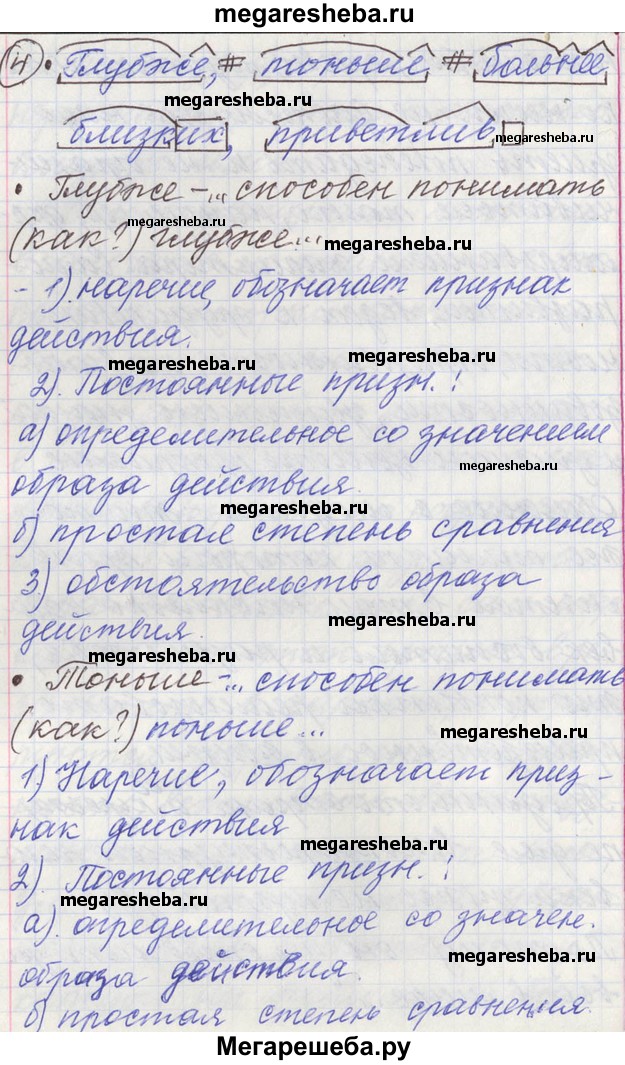 megaresheba.ru
4 • Глубже, # тоньше # больнее
megaresheba.ru
megaresheba.ru
близких, приветлив
megaresheba.ru
• Глубже - ... способен понимать
megaresheba.ru
(как?) глубже...
megaresheba.ru
- 1) наречие, обозначает признак
действия.
megaresheba.ru
megaresheba.ru
2). Постоянные призн.:
а) определительное со значением
megaresheba.ru
образа действия.
б) простая степень сравнения
3.) обстоятельство образа
megaresheba.ru
действия.
megaresheba.ru
• Тоньше - ... способен понимать
(как?) поньше...
megaresheba.ru
1) Наречие, обозначает приз-
нак действия
megaresheba.ru
2). Постоянные призн.:
а). определительное со значен.
megaresheba.ru
образа действия.
б) простая степень сравнения.
Мегарешеба.ру